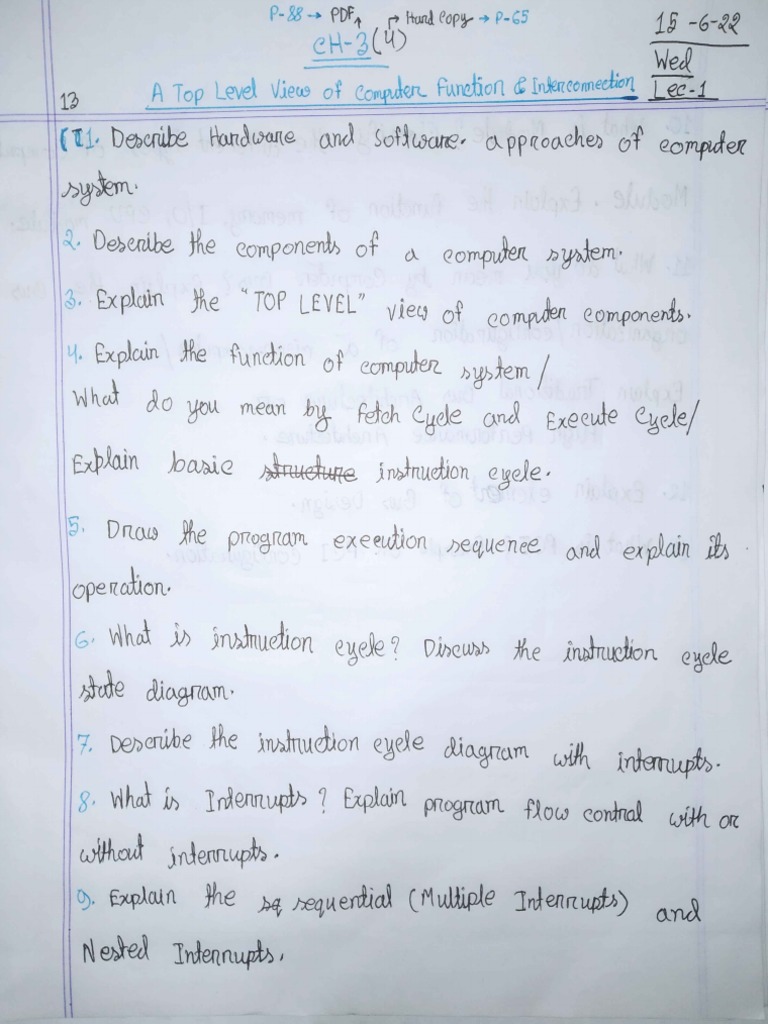 P-88 → PDF Hard Copy → P-65
CH-3 (4)
15-6-22
Wed
Lec-1
13 A Top Level View of Computer Function & Interconnection
1. Describe Hardware and Software. approaches of computer
system.
2. Describe the components of a computer system.
3. Explain the "TOP LEVEL" view of computer components.
4. Explain the function of computer system /
What do you mean by fetch Cycle and Execute Cycle/
Explain basic structure instruction cycle.
5. Draw the program execution sequence and explain its
operation.
6. What is instruction cycle? Discuss the instruction cycle
state diagram.
7. Describe the instruction cycle diagram with interrupts.
8. What is Interrupts? Explain program flow control with or
without interrupts.
9. Explain the sq sequential (Multiple Interrupts) and
Nested Interrupts.